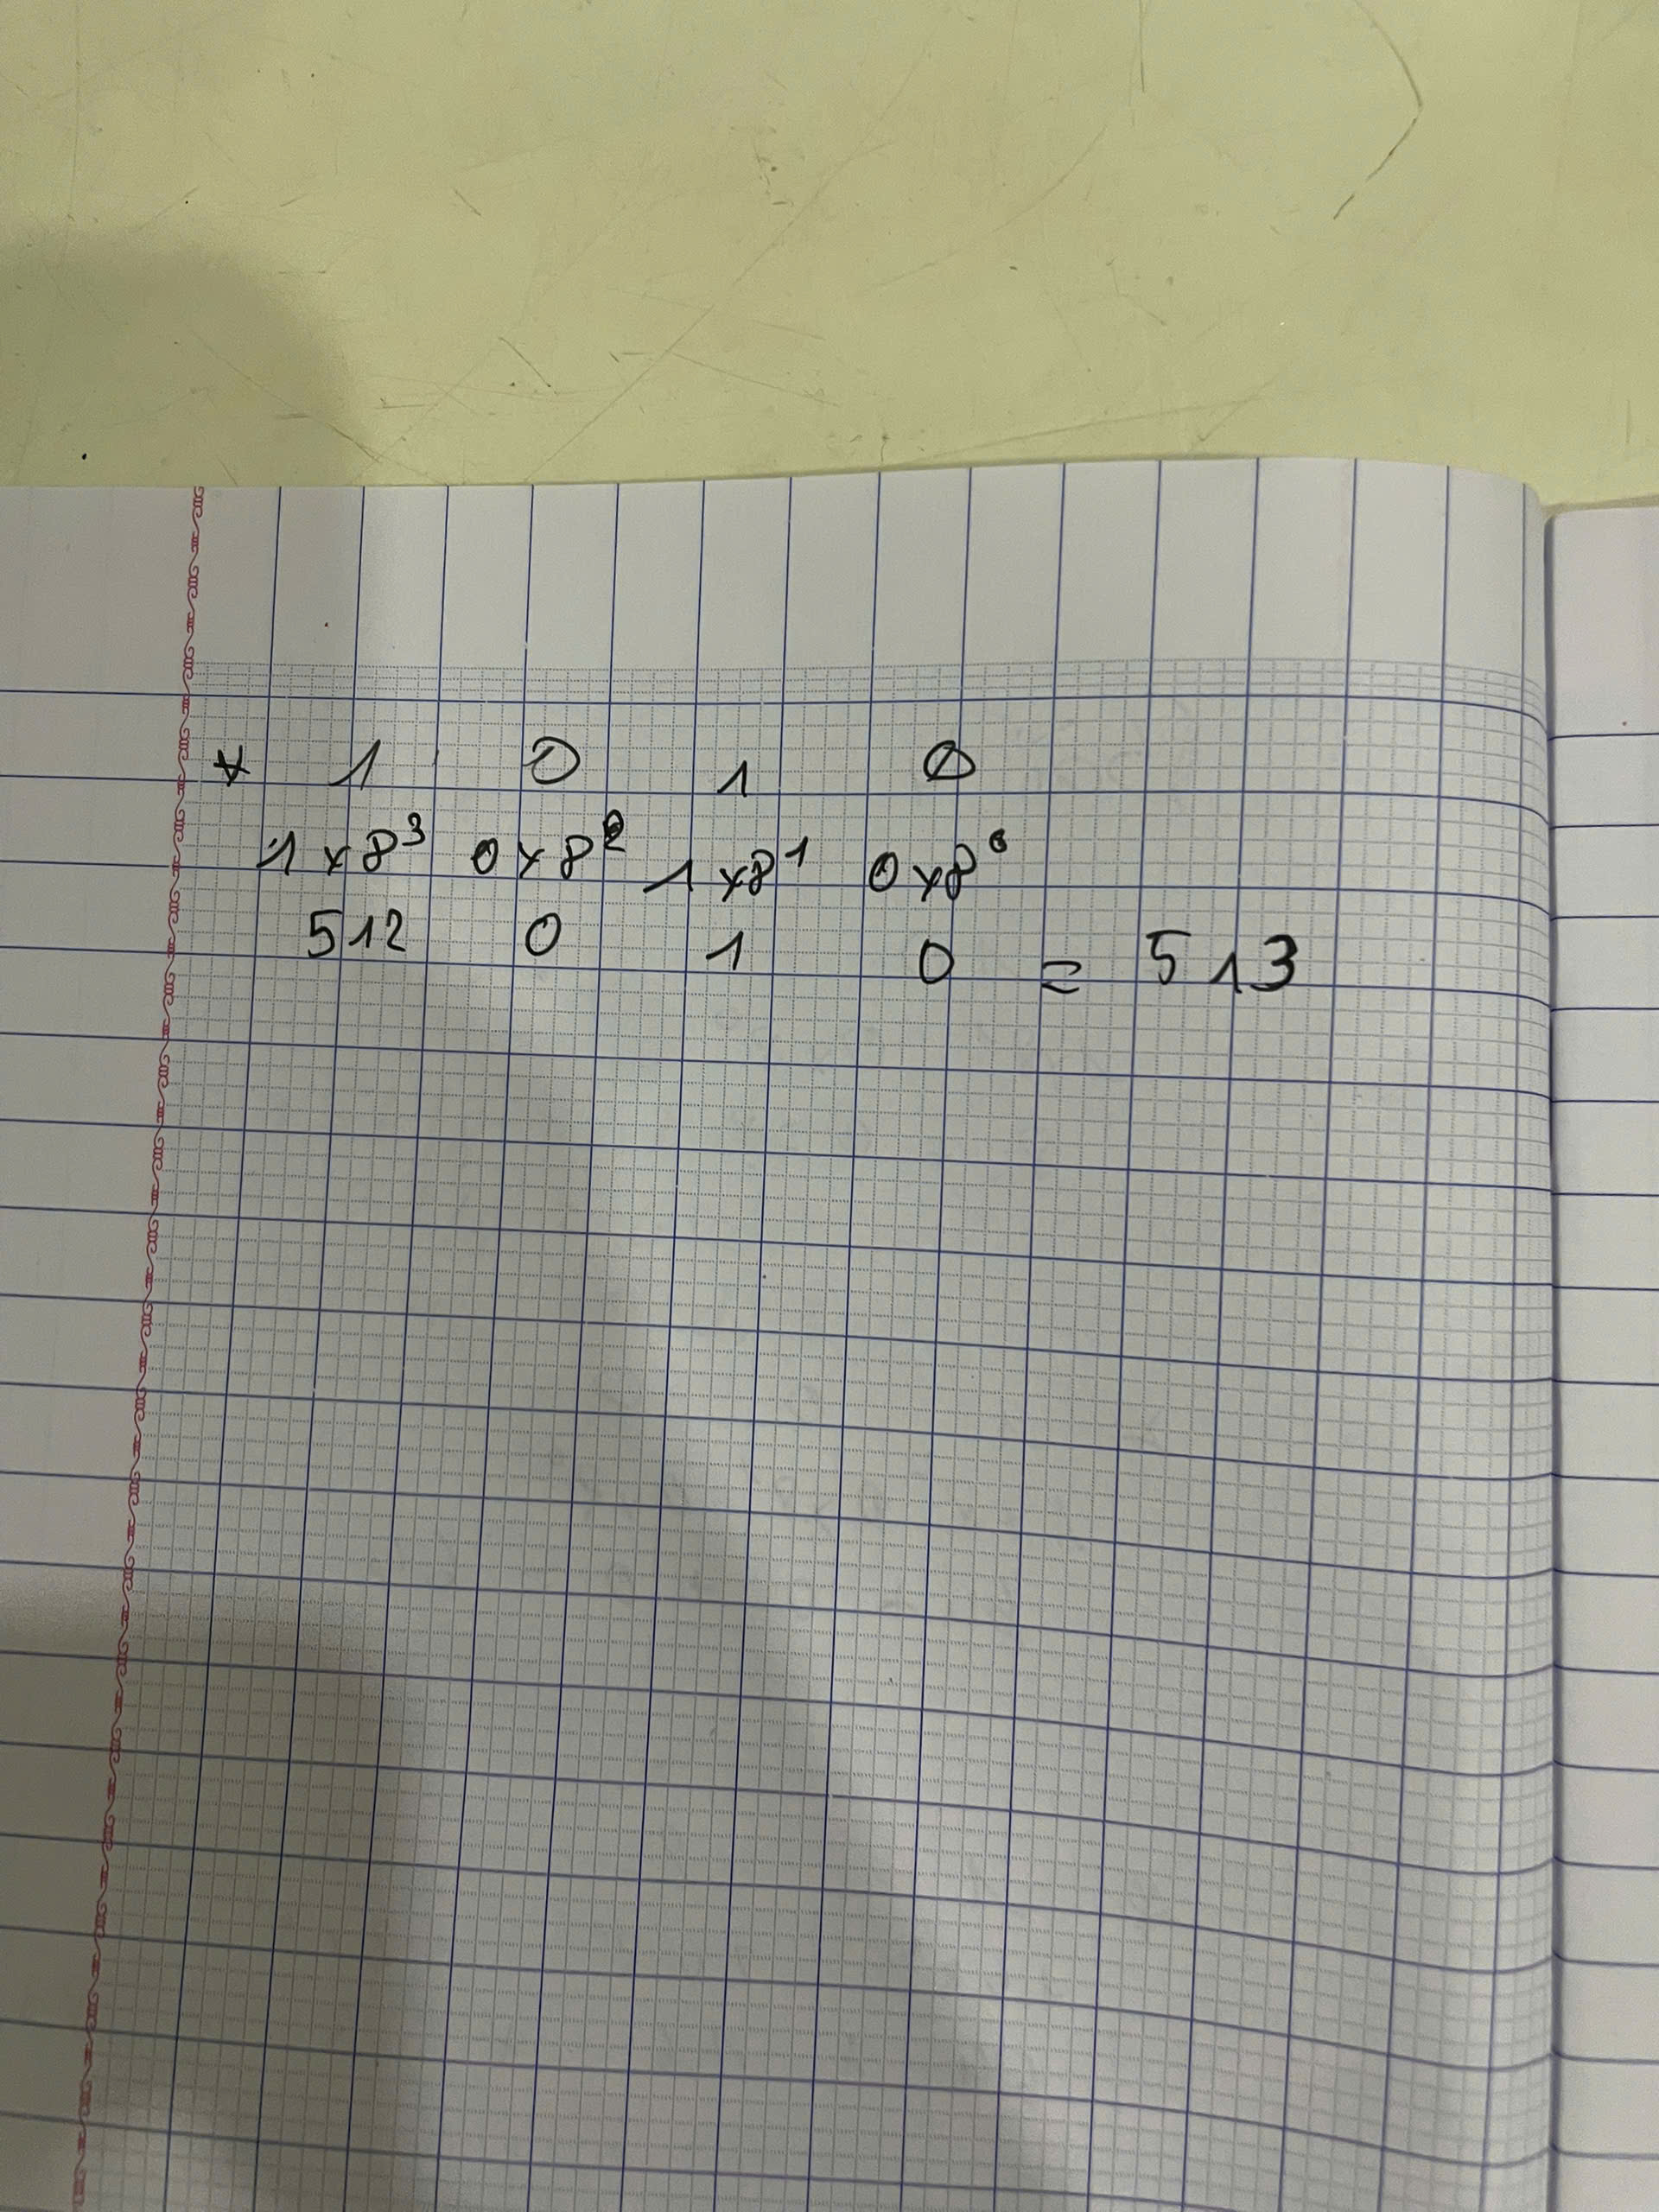 * 1 0 1 0
1×8³ 0×8² 1×8¹ 0×8⁰
512 0 1 0 = 513